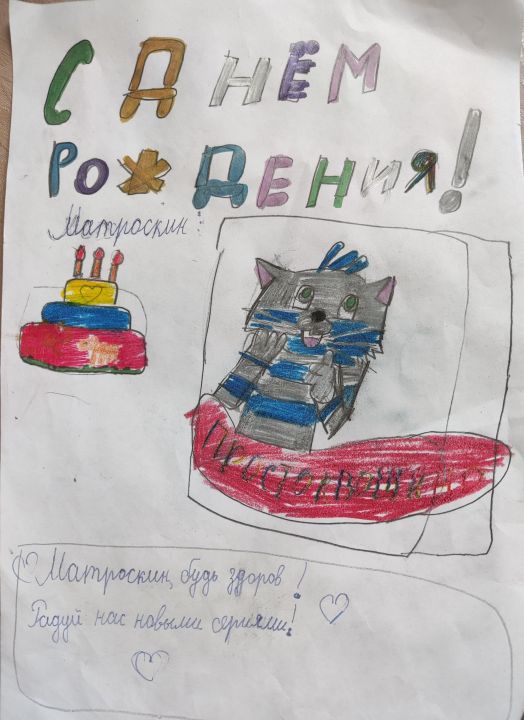 С ДНЁМ
РОЖДЕНИЯ!
Матроскин!
ПРОСТОКВАШИНО
Матроскин, будь здоров!
Радуй нас новыми сериями!